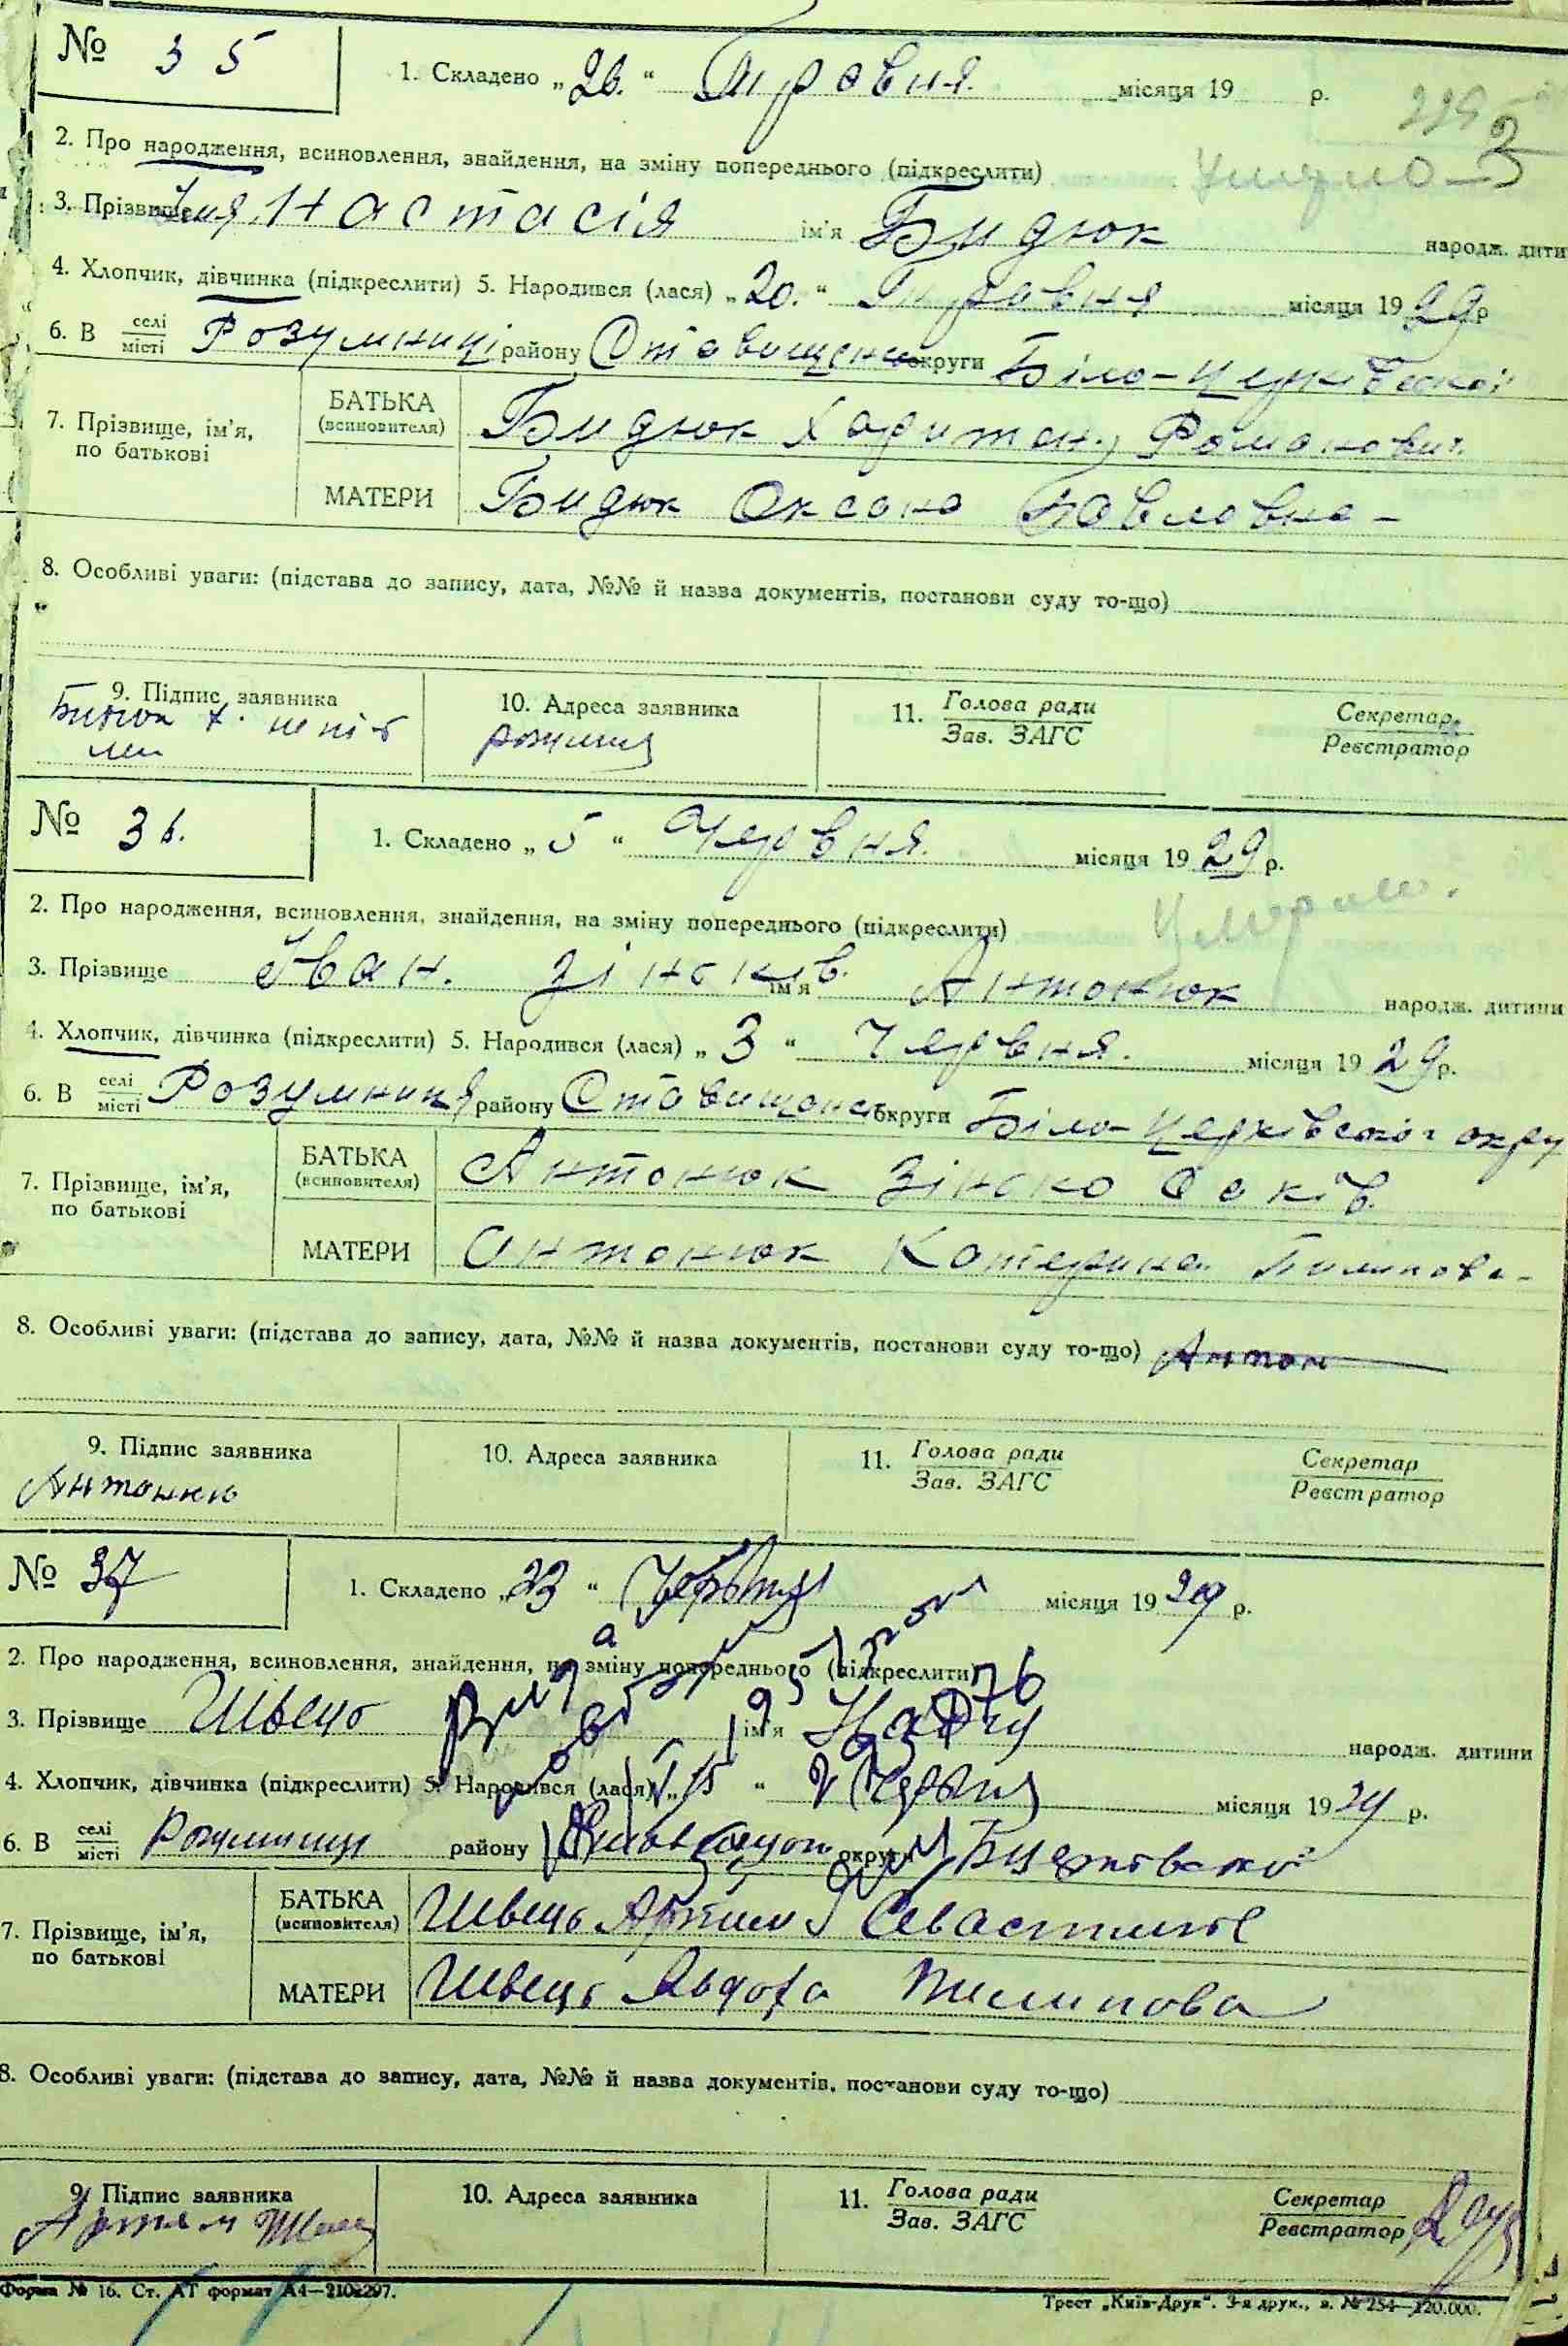 № 35 1. Складено „26.“ Травня. місяця 19 р.
2. Про народження, всиновлення, знайдення, на зміну попереднього (підкреслити)
3. Прізвище Настасія ім'я Бидюк народж. дити
4. Хлопчик, дівчинка (підкреслити) 5. Народився (лася) „20.“ Травня місяця 19 29 р
6. В селі місті Розумниці району Ставищен округи Біло-Церківської
7. Прізвище, ім'я, по батькові БАТЬКА (всиновителя) Бидюк Харитон Романович.
МАТЕРИ Бидюк Оксана Павловна -
8. Особливі уваги: (підстава до запису, дата, №№ й назва документів, постанови суду то-що)
9. Підпис заявника 10. Адреса заявника 11. Голова ради Зав. ЗАГС Секретар Реєстратор
Бидюк Х.
№ 36. 1. Складено „5“ Червня. місяця 19 29 р.
2. Про народження, всиновлення, знайдення, на зміну попереднього (підкреслити)
3. Прізвище Іван. Зіньків. ім'я Антонюк народж. дитини
4. Хлопчик, дівчинка (підкреслити) 5. Народився (лася) „3“ Червня. місяця 19 29 р.
6. В селі місті Розумниця району Ставищен округи Біло-Церківської окру
7. Прізвище, ім'я, по батькові БАТЬКА (всиновителя) Антонюк Зінько
МАТЕРИ Антонюк Катерина Пилипова-
8. Особливі уваги: (підстава до запису, дата, №№ й назва документів, постанови суду то-що) Антон
9. Підпис заявника 10. Адреса заявника 11. Голова ради Зав. ЗАГС Секретар Реєстратор
Антонюк
№ 37 1. Складено „23“ Червня місяця 19 29 р.
2. Про народження, всиновлення, знайдення, на зміну попереднього (підкреслити)
3. Прізвище Швець ім'я народж. дитини
4. Хлопчик, дівчинка (підкреслити) 5. Народився (лася) „15“ Червня місяця 19 29 р.
6. В селі місті Розумниці району округи
7. Прізвище, ім'я, по батькові БАТЬКА (всиновителя) Швець Артем
МАТЕРИ Швець Явдоха Пилипова
8. Особливі уваги: (підстава до запису, дата, №№ й назва документів, постанови суду то-що)
9. Підпис заявника 10. Адреса заявника 11. Голова ради Зав. ЗАГС Секретар Реєстратор
Артем Швец
Форма № 16. Ст. АТ формат А4—210х297. Трест „Київ-Друк“. 3-я друк., з. № 254—120.000.